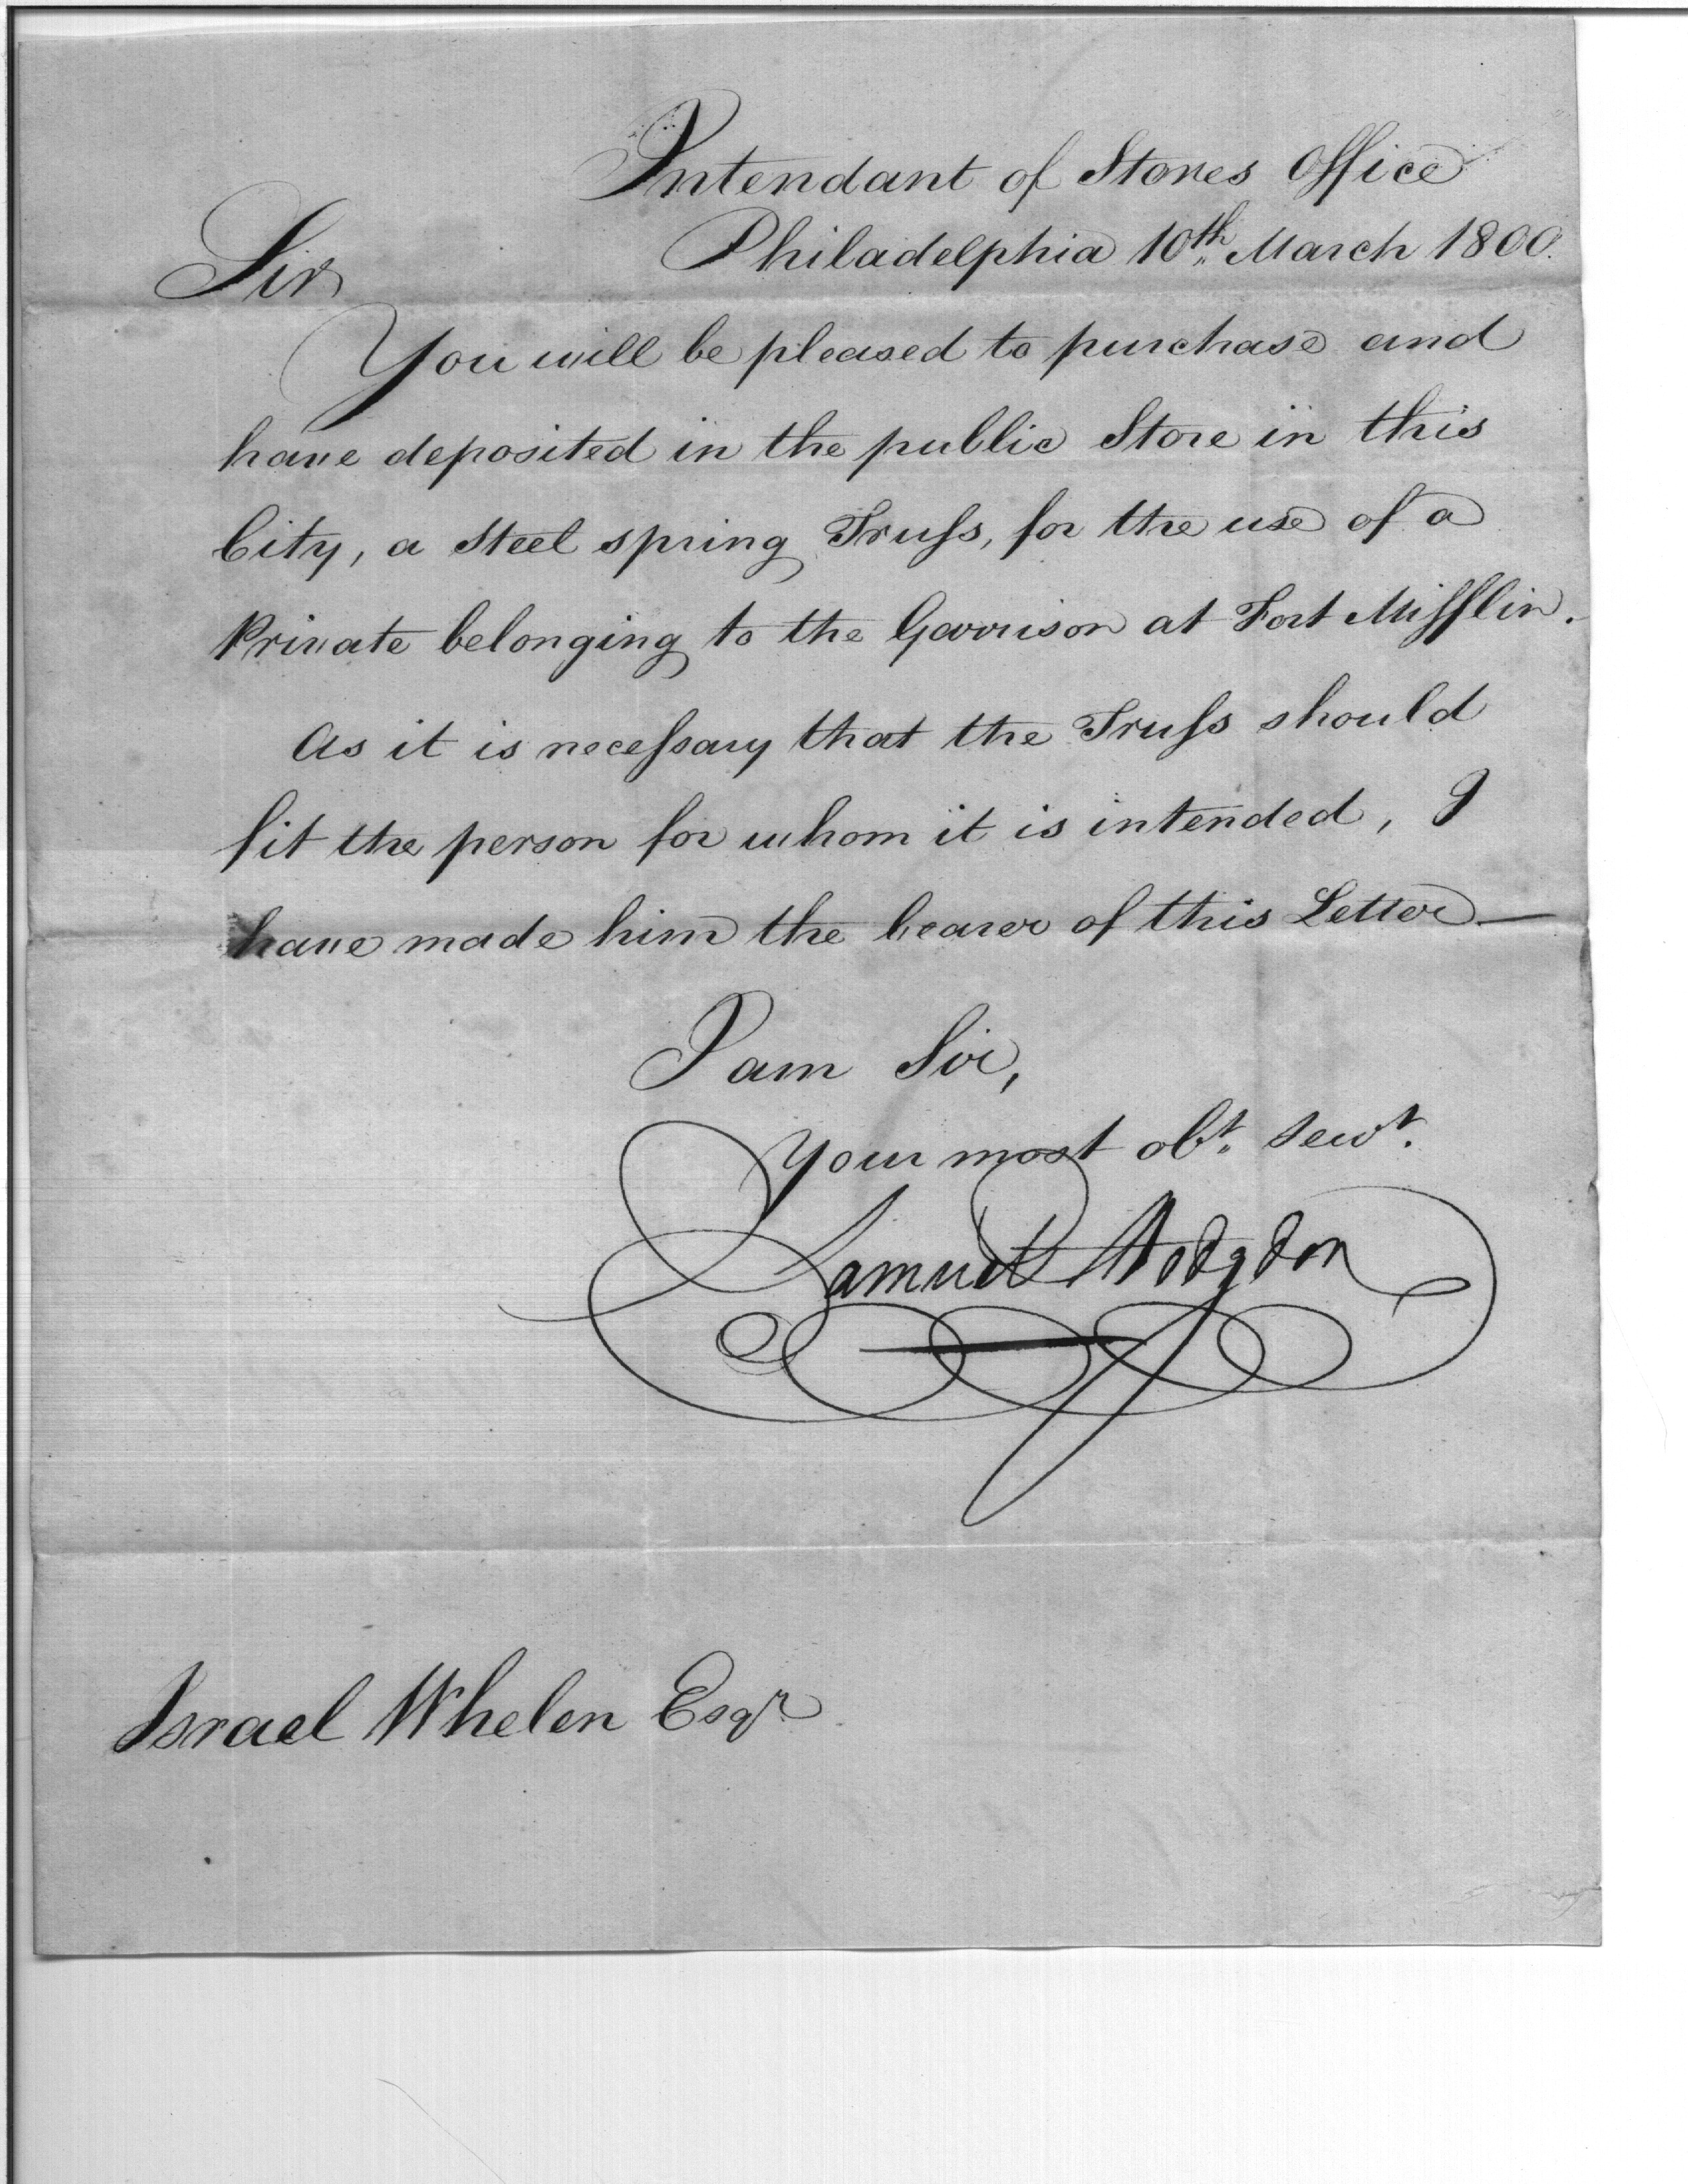 Intendant of Stores Office
Philadelphia 10th March 1800.
Sir
You will be pleased to purchase and
have deposited in the public Store in this
City, a Steel spring Truſs, for the use of a
Private belonging to the Garrison at Fort Mifflin.
As it is neceſsary that the Truſs should
fit the person for whom it is intended, I
have made him the bearer of this Letter —
I am Sir,
Your most obt. servt.
Samuel Hodgdon
Israel Whelen Esqr